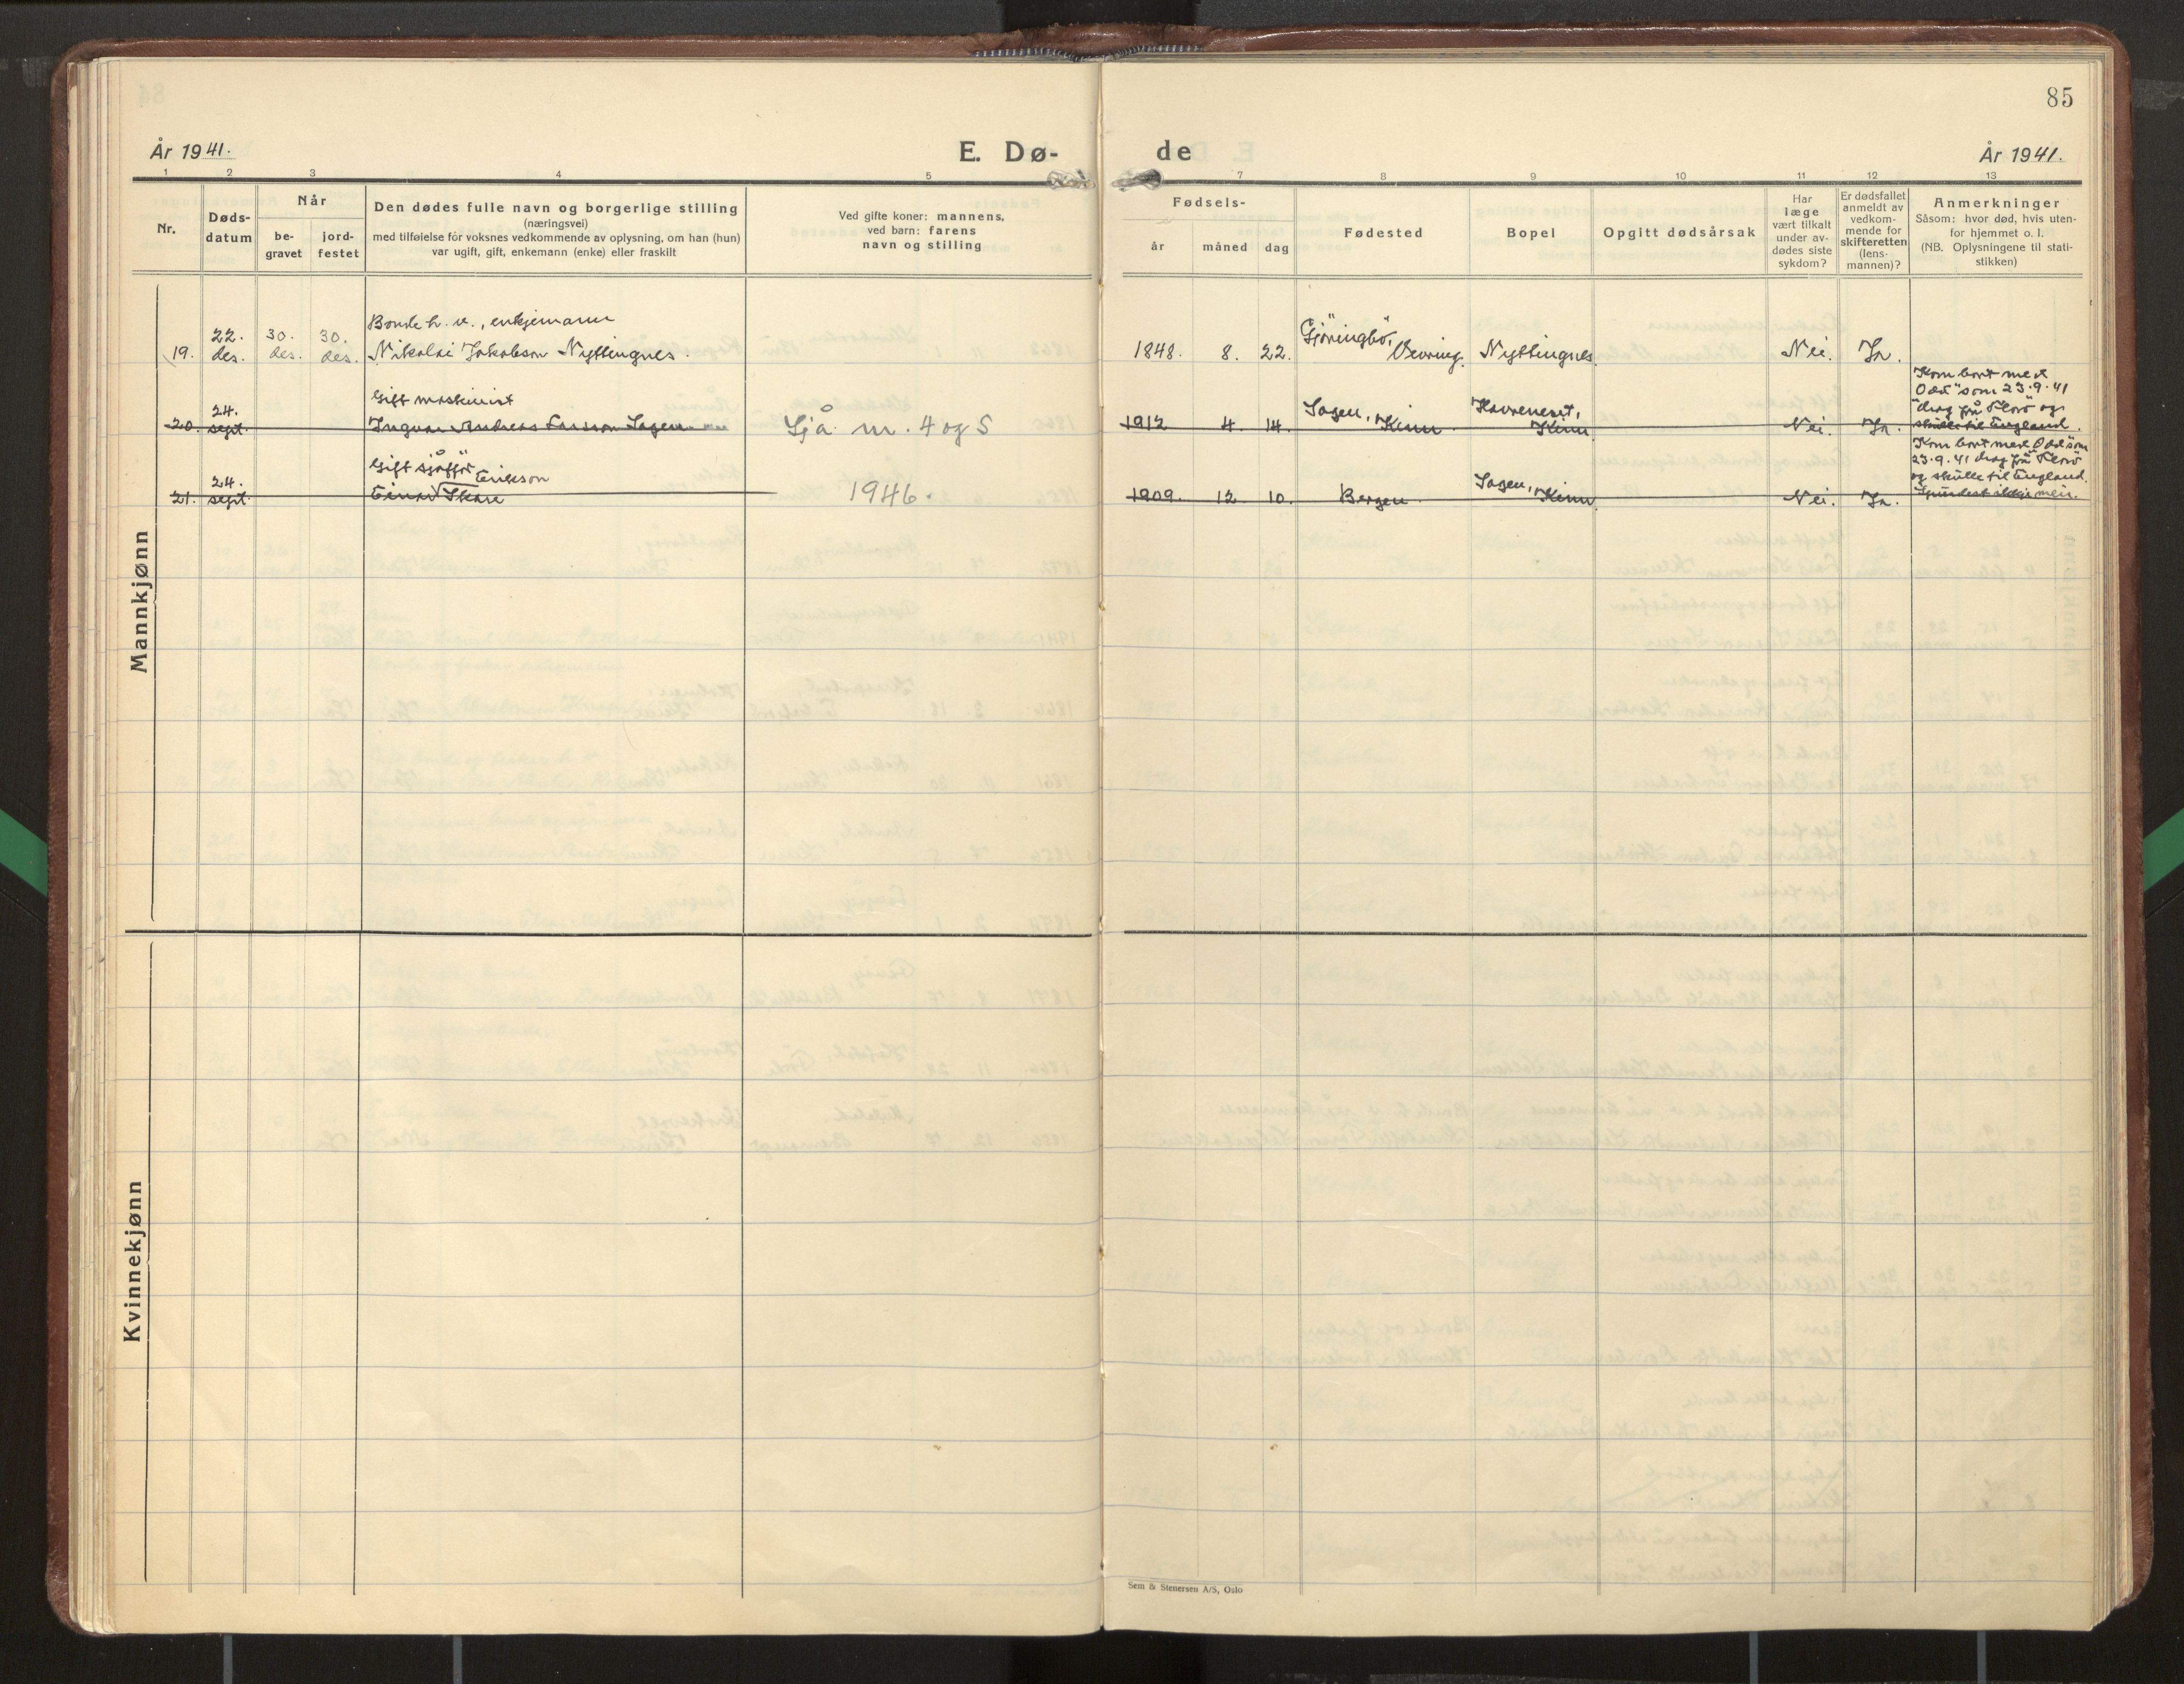 85
År 1941.
E. Dø-
de
År 1941.
1 2 3 4 5
7 8 9 10 11 12 13
Nr.
Døds-
datum
Når
be-
gravet
jord-
festet
Den dødes fulle navn og borgerlige stilling
(næringsvei)
med tilføielse for voksnes vedkommende av oplysning, om han (hun)
var ugift, gift, enkemann (enke) eller fraskilt
Ved gifte koner: mannens,
ved barn: farens
navn og stilling
Fødsels-
år måned dag
Fødested
Bopel
Opgitt dødsårsak
Har
læge
vært tilkalt
under av-
dødes siste
sykdom?
Er dødsfallet
anmeldt av
vedkom-
mende for
skifteretten
(lens-
mannen)?
Anmerkninger
Såsom: hvor død, hvis uten-
for hjemmet o. l.
(NB. Oplysningene til stati-
stikken)
Mannkjønn
19.
22.
des.
30.
des.
30.
des.
Bonde h. v., enkjemann
Nikolai Jakobson Nyttingnes.
1848. 8. 22.
Gjöringbö,
Vevring.
Nyttingnes
Nei. Ja.
20.
24.
sept.
Gift maskinist
Ingvar Andreas Larsson Sagen
Sjå nr. 4 og 5
1912 4 14.
Sagen, Kinn
Havreneset,
Kinn
Nei. Ja.
Kom bort med
"Odd" som 23.9.41
drog frå Florö og
skulle til England.
21.
24.
sept.
Gift sjåffør
Erikson
Einar Skare
1946.
1909. 12. 10.
Bergen.
Sagen, Kinn
Nei. Ja.
Kom bort med "Odd" som
23.9.41 drog frå Florö
og skulle til England.
Spurdest ikkje meir.
Kvinnekjønn
Sem & Stenersen A/S, Oslo